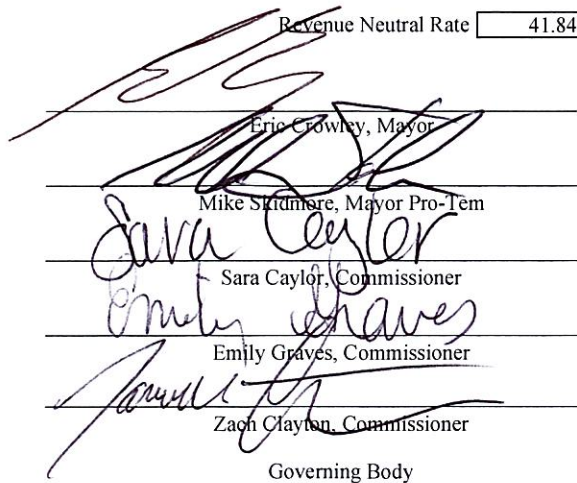 Revenue Neutral Rate 41.84
Eric Crowley, Mayor
Mike Skidmore, Mayor Pro-Tem
Sara Caylor
Sara Caylor, Commissioner
Emily Graves
Emily Graves, Commissioner
Zach Clayton, Commissioner
Governing Body